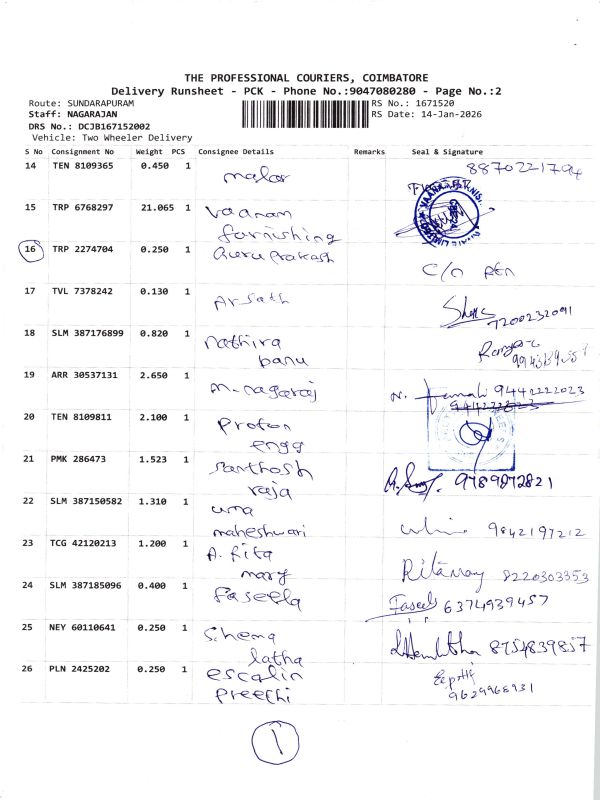 THE PROFESSIONAL COURIERS, COIMBATORE
Delivery Runsheet - PCK - Phone No.:9047080280 - Page No.:2
Route: SUNDARAPURAM RS No.: 1671520
Staff: NAGARAJAN RS Date: 14-Jan-2026
DRS No.: DCJB167152002
Vehicle: Two Wheeler Delivery
S No Consignment No Weight PCS Consignee Details Remarks Seal & Signature
14 TEN 8109365 0.450 1 malar 8870221794
15 TRP 6768297 21.065 1 Vaanam
furnishing
16 TRP 2274704 0.250 1 Guru Prakash C/n
17 TVL 7378242 0.130 1 Arsath 7200232091
18 SLM 387176899 0.820 1 nathira
banu
19 ARR 30537131 2.650 1 m. nagaraj 9442222023
20 TEN 8109811 2.100 1 Proton
engg
21 PMK 286473 1.523 1 Santhosh
raja 9789872821
22 SLM 387150582 1.310 1 uma
maheshwari 9842197212
23 TCG 42120213 1.200 1 A. Rita
mary Rita Mary 8220303353
24 SLM 387185096 0.400 1 Faseela Faseela 6374939457
25 NEY 60110641 0.250 1 S. hema
latha 8754839857
26 PLN 2425202 0.250 1 escalin
Preethi 9629968931
1